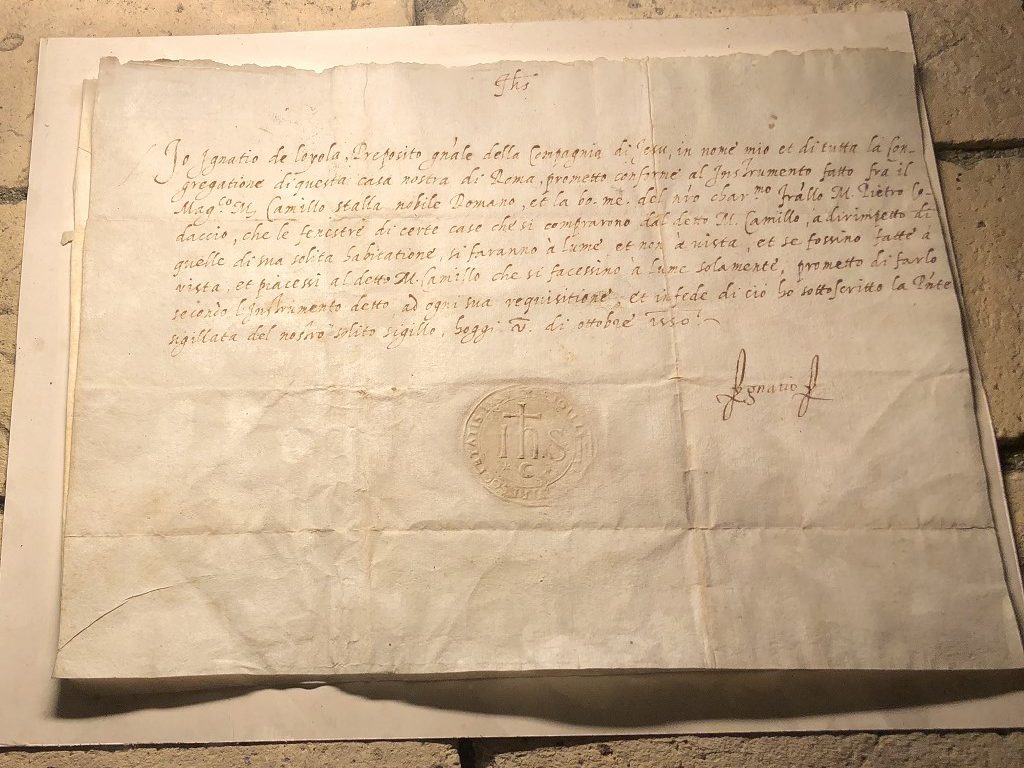 Jhs
Jo Ignatio de loyola, Preposito gn̄ale della Compagnia di Jesu, in nome mio et di tutta la Con-
gregatione di questa casa nostra di Roma, prometto conforme al Instrumento fatto fra il
Mag.co M. Camillo stalla nobile Romano, et la bo. me. del n̄ro char.mo fr̄allo M. Pietro Co-
daccio, che le fenestre di certe case che si comprarono dal detto M. Camillo, a dirimpetto di
quelle di sua solita habitatione, si faranno à lume et non à vista, et se fossino fatte à
vista, et piacessi al detto M. Camillo che si facessino à lume solamente, prometto di farlo
secondo l'Instrumento detto, ad ogni sua requisitione, et in fede di ciò ho sottoscritto la P̄nte
sigillata del nostro solito sigillo, hoggi V. di ottobre 1550.
Ignatio
ihs